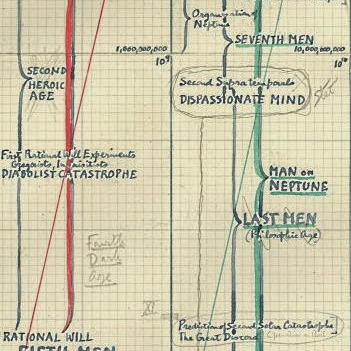 Organization of
Neptune
SEVENTH MEN
1,000,000,000
10⁹
10,000,000,000
10¹⁰
SECOND
HEROIC
AGE
Second Supratemporals
DISPASSIONATE MIND
Stet
First Rational Will Experiments
DIABOLIST CATASTROPHE
MAN ON
NEPTUNE
LAST MEN
(Philosophic Age)
Fourth
Dark
Age
XV
Prediction of Second Solar Catastrophe
The Great Discord
RATIONAL WILL
FIFTH MEN